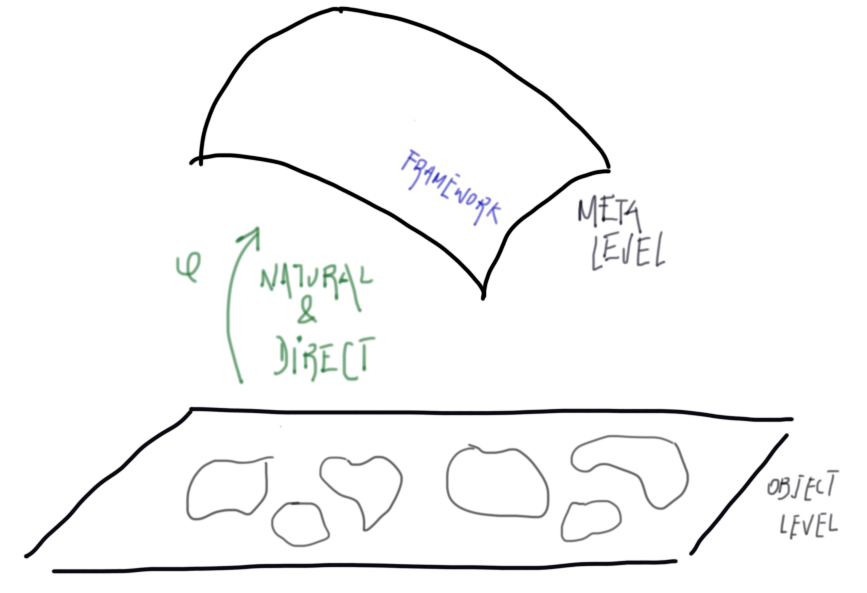 FRAMEWORK
META
LEVEL
φ
NATURAL
&
DIRECT
OBJECT
LEVEL